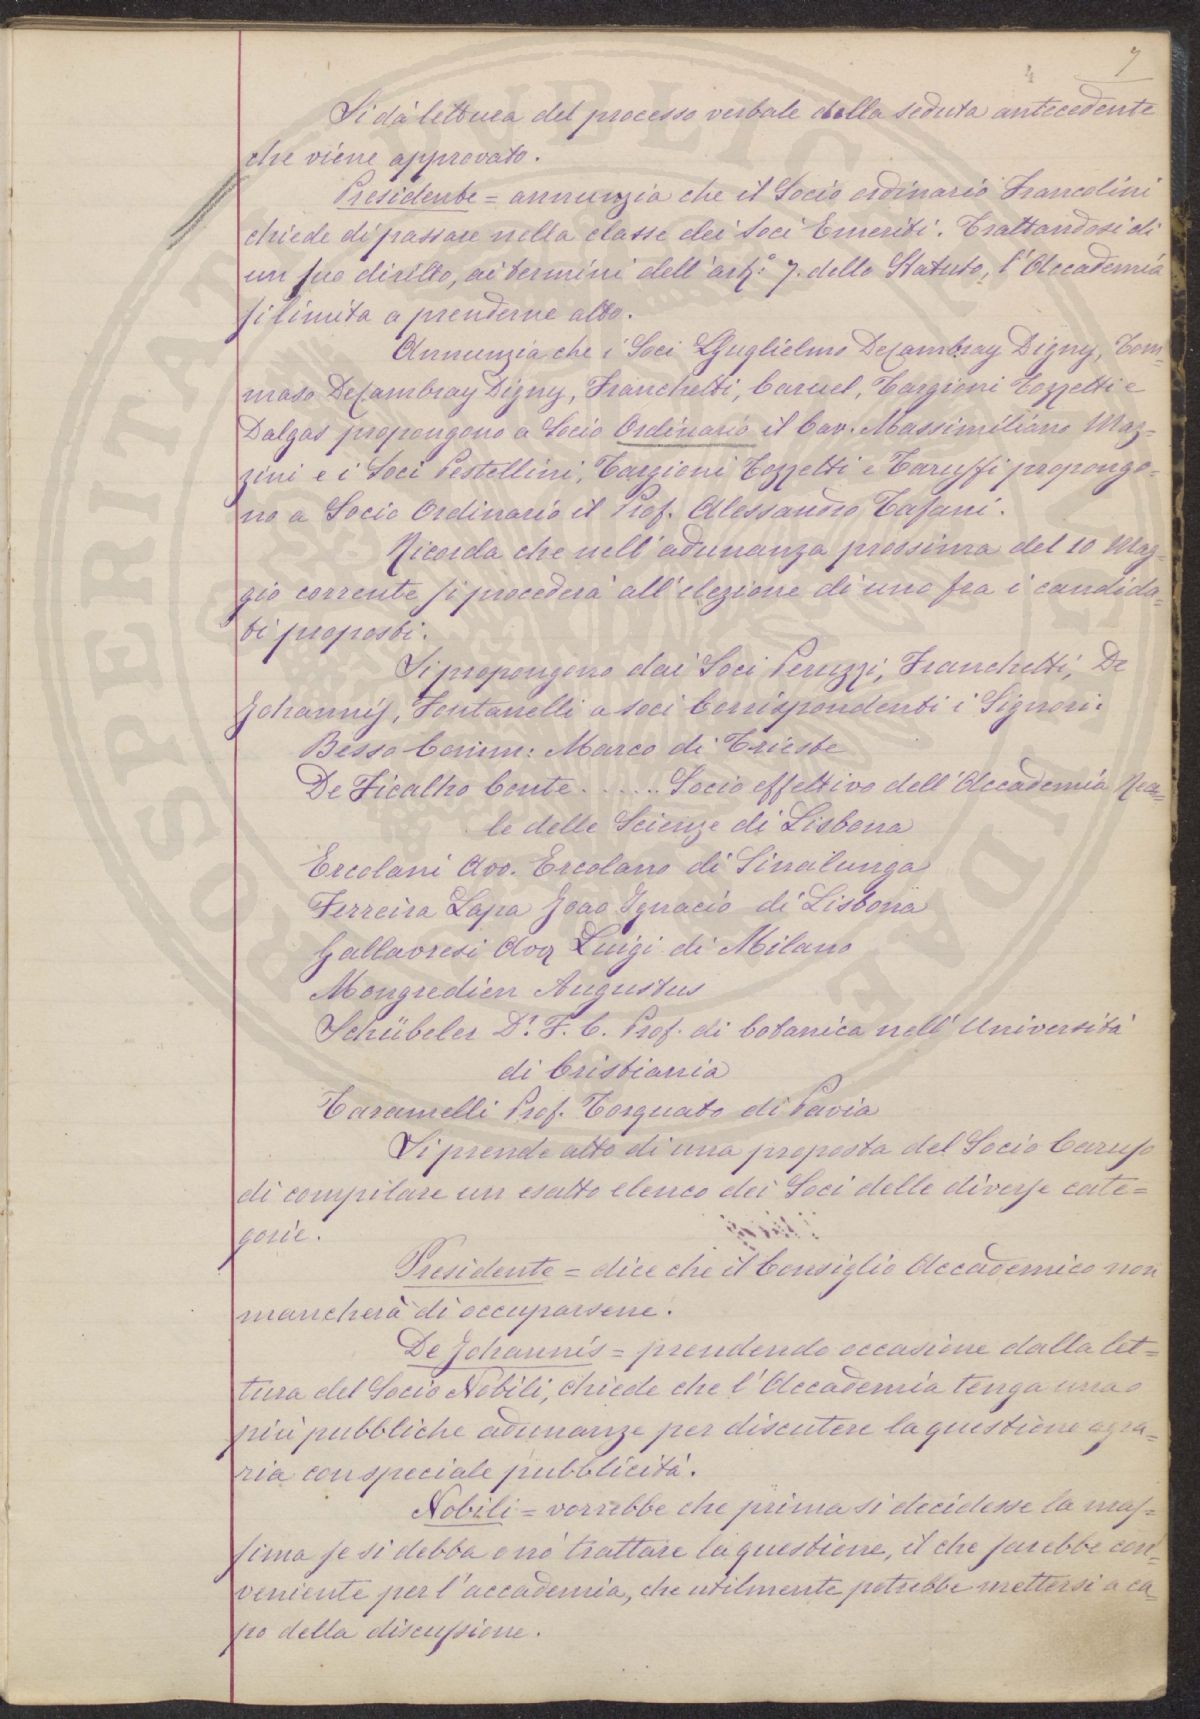 7
4
Si dà lettura del processo verbale della seduta antecedente
che viene approvato.
Presidente = annunzia che il Socio ordinario Francolini
chiede di passare nella classe dei Soci Emeriti. Trattandosi di
un suo diritto, ai termini dell'artº: 7. dello Statuto, l'Accademia
si limita a prenderne atto.
Annunzia che i Soci Guglielmo De Cambray Digny, Tom=
maso De Cambray Digny, Franchetti, Caruel, Targioni Tozzetti e
Dalgas propongono a Socio Ordinario il Cav. Massimiliano Maz=
zini e i Soci Pestellini, Targioni Tozzetti e Taruffi propongo=
no a Socio Ordinario il Prof. Alessandro Tafani.
Ricorda che nell'adunanza prossima del 10 Mag=
gio corrente si procederà all'elezione di uno fra i candida=
ti proposti.
Si propongono dai Soci Peruzzi, Franchetti, De
Johannis, Fontanelli a soci Corrispondenti i Signori:
Besso Comm: Marco di Trieste
De Ficalho Conte ...... Socio effettivo dell'Accademia Rea=
le delle Scienze di Lisbona
Ercolani Avv. Ercolano di Sinalunga
Ferreira Lapa Joao Ignacio di Lisbona
Gallavresi Avv Luigi di Milano
Mongredien Augustus
Schübeler Dr. F. C. Prof. di botanica nell'Università
di Cristiania
Taramelli Prof. Torquato di Pavia
Si prende atto di una proposta del Socio Caruso
di compilare un esatto elenco dei Soci delle diverse cate=
gorie.
Presidente = dice che il Consiglio Accademico non
mancherà di occuparsene.
De Johannis = prendendo occasione dalla let=
tura del Socio Nobili, chiede che l'Accademia tenga una o
più pubbliche adunanze per discutere la questione agra=
ria con speciale pubblicità.
Nobili = vorrebbe che prima si decidesse la mas=
sima se si debba o nò trattare la questione, il che sarebbe con=
veniente per l'accademia, che utilmente potrebbe mettersi a ca
po della discussione.
PROSPERITATI PUBLICAE AUGENDAE